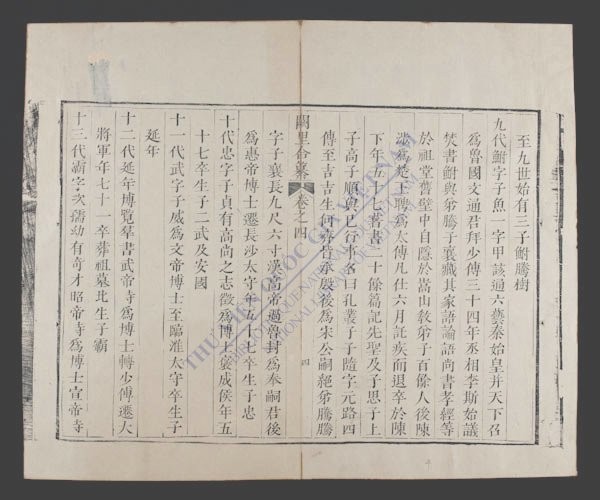 至九世始有三子鮒騰樹
九代鮒字子魚一字甲該通六藝秦始皇并天下召
爲魯國文通君拜少傅三十四年丞相李斯始議
焚書鮒與弟騰子襄藏其家語論語尚書孝經等
於祖堂舊壁中自隱於嵩山教弟子百餘人後陳
涉爲楚王聘爲太傅凡仕六月託疾而退卒於陳
下年五十七著書二十餘篇記先聖及子思子上
子高子順與己行事名曰孔叢子子隨字元路四
傳至吉吉生何齊皆承殷後爲宋公嗣絕弟騰騰
闕里
卷之四
四
字子襄長九尺六寸漢高帝過魯封爲奉嗣君後
爲惠帝博士遷長沙太守年五十七卒生子忠
十代忠字子貞有高尚之志徵爲博士褒成侯年五
十七卒生子二武及安國
十一代武字子威爲文帝博士至臨淮太守卒生子
延年
十二代延年博覽羣書武帝寺爲博士轉少傅遷大
將軍年七十一卒葬祖墓北生子霸
十三代霸字次孺幼有奇才昭帝寺爲博士宣帝寺
THƯ VIỆN QUỐC GIA VIỆT NAM
BIBLIOTHEQUE NATIONALE DU VIETNAM
NATIONAL LIBRARY OF VIETNAM